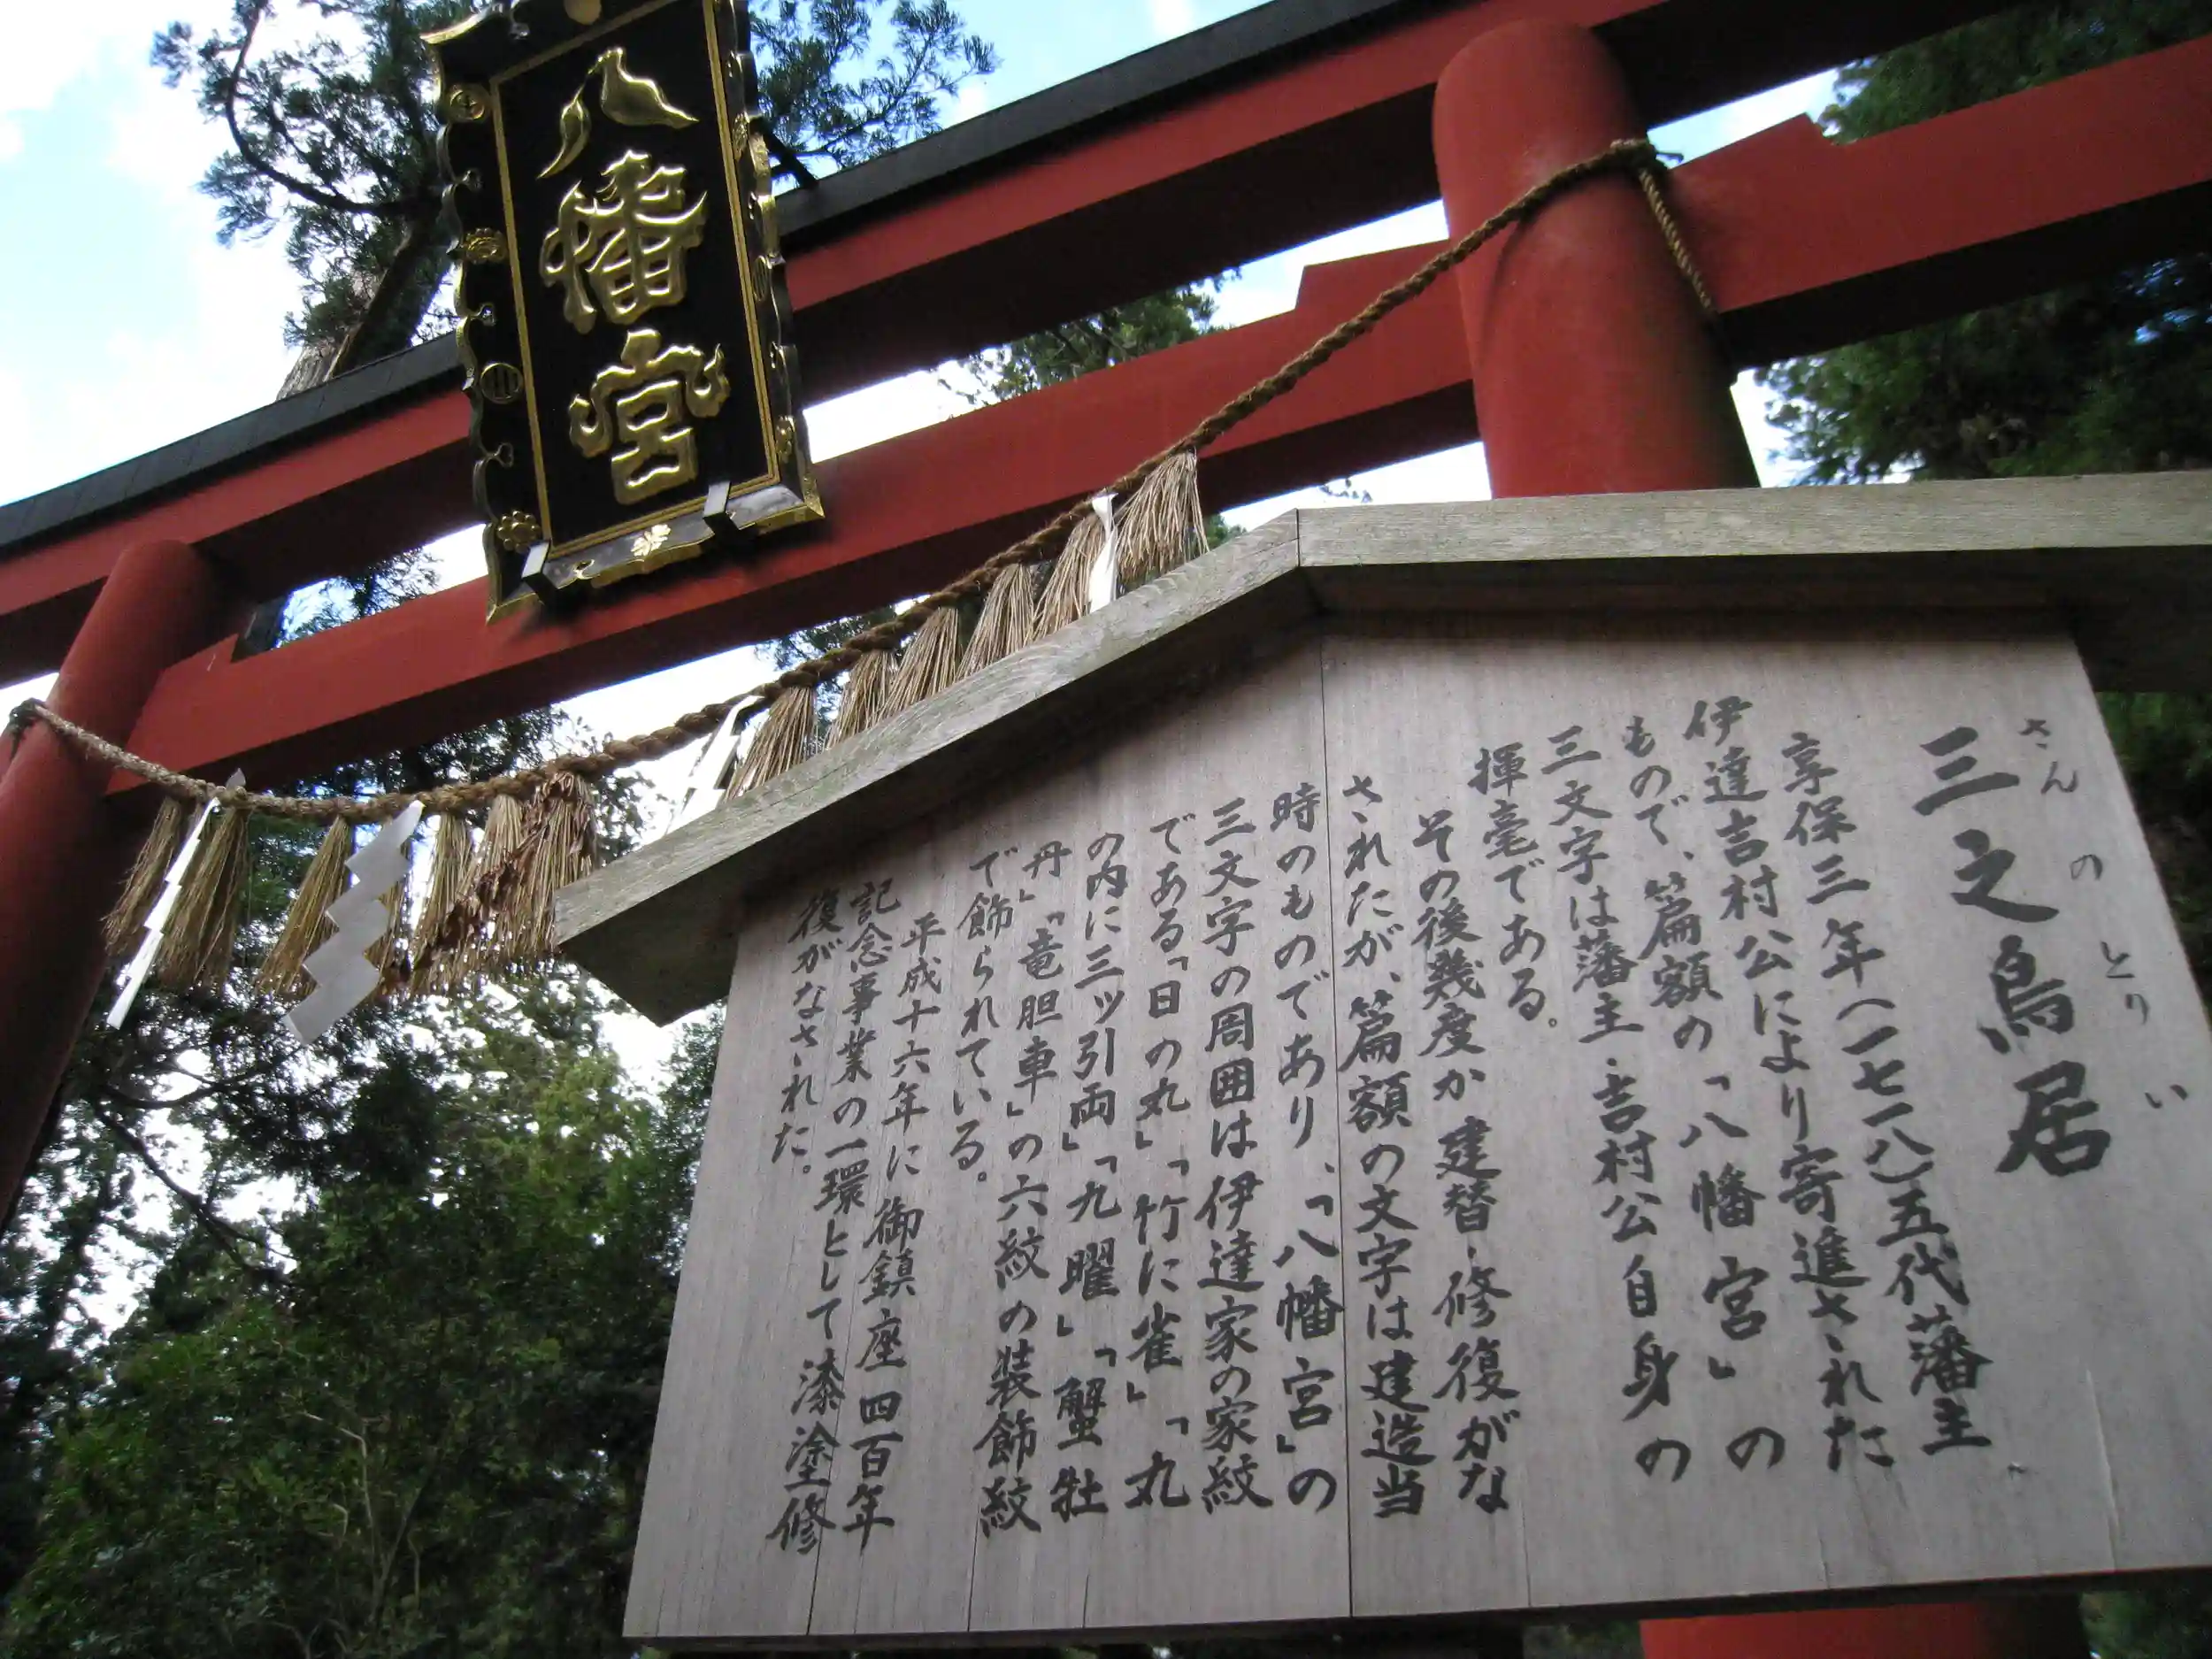 八幡宮
さんのとりい
三之鳥居
享保三年(一七一八)五代藩主
伊達吉村公により寄進さゝれた
もので、篇額の「八幡宮」の
三文字は藩主・吉村公自身の
揮毫である。
その後幾度か建替・修復がな
さゝれたが、篇額の文字は建造当
時のものであり、「八幡宮」の
三文字の周囲は伊達家の家紋
である「日の丸」「竹に雀」「丸
の内に三ッ引両」「九曜」「蟹牡
丹」「竜胆車」の六紋の装飾紋
で飾られている。
平成十六年に御鎮座四百年
記念事業の一環として漆塗修
復がなさゝれた。